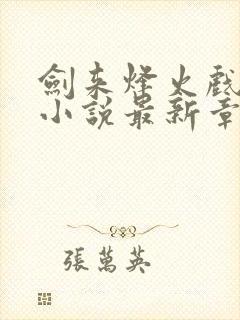 劍来烽火戲
小說最新章
張萬英